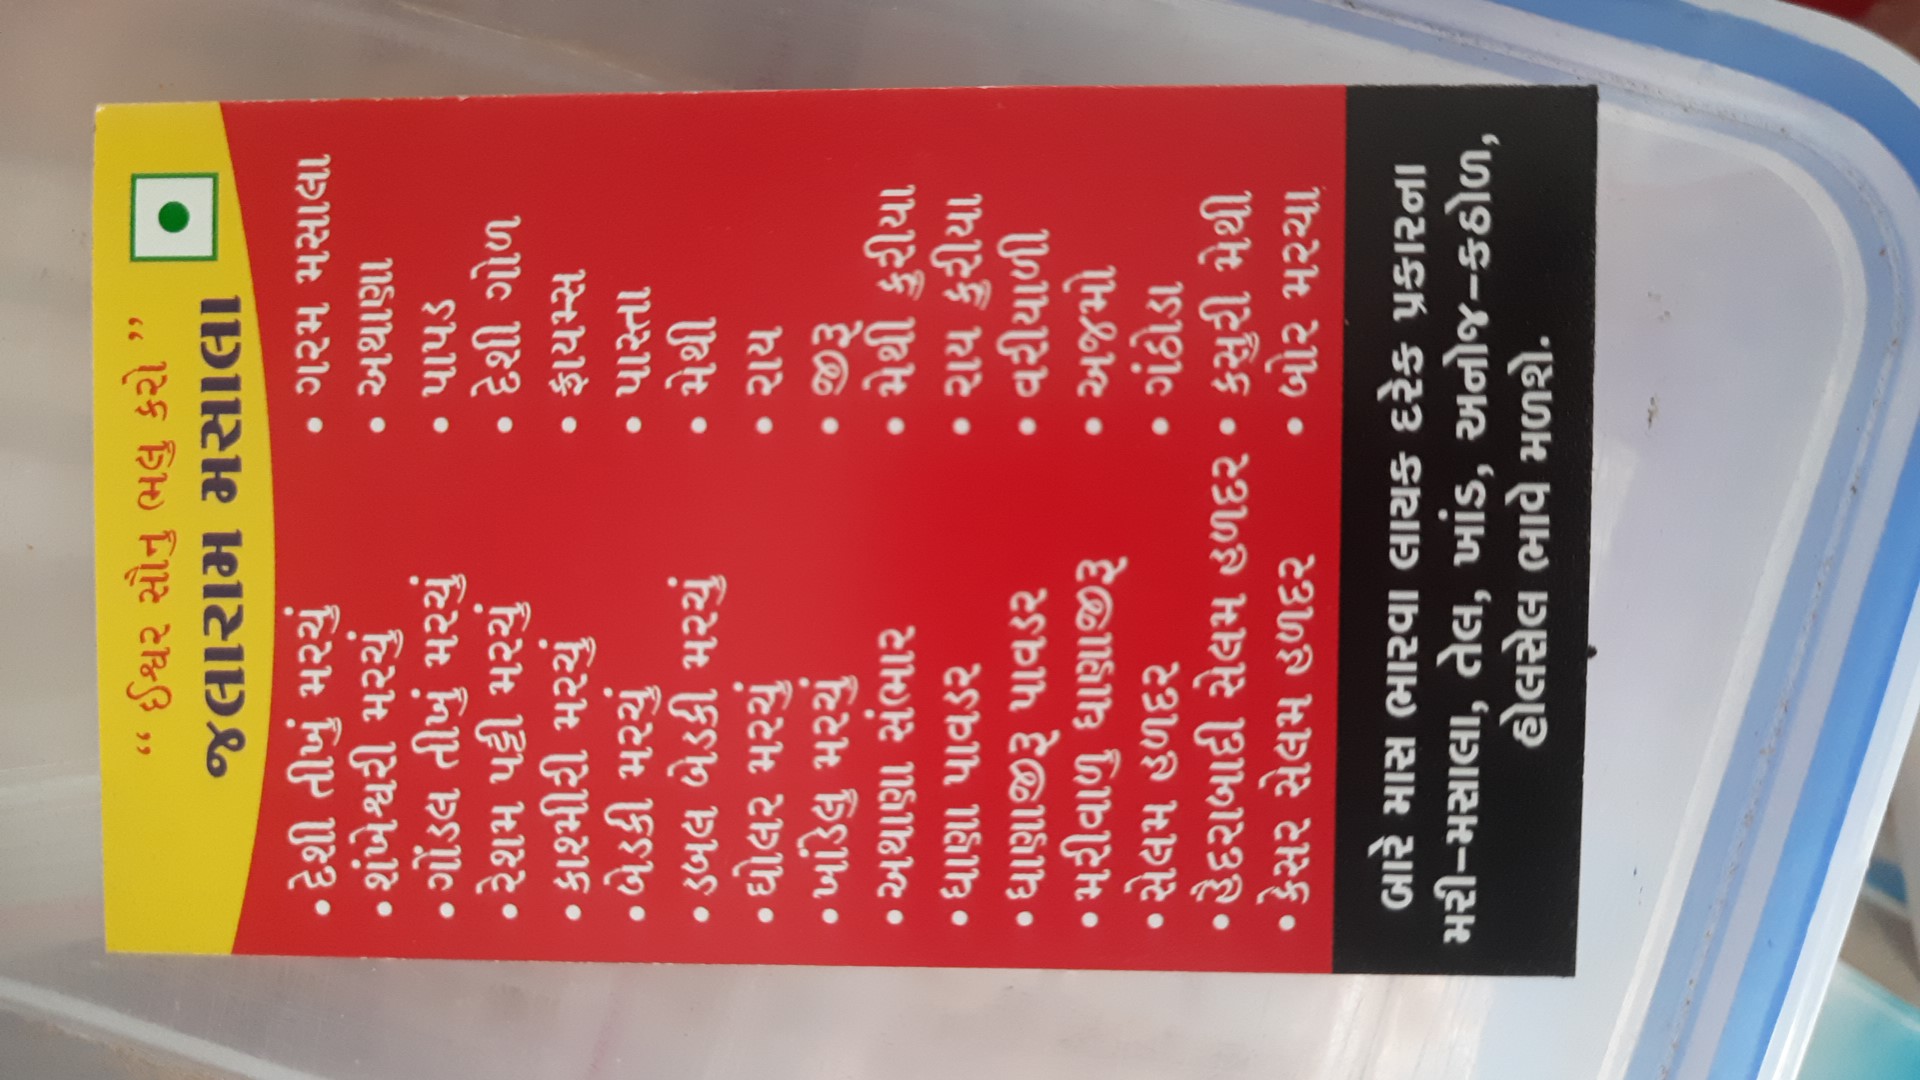 “ ઈશ્વર સૌનુ ભલુ કરો ”
જલારામ મસાલા
• દેશી તીખું મરચું
• શંખેશ્વરી મરચું
• ગોંડલ તીખું મરચું
• રેશમ પટ્ટી મરચું
• કાશ્મીરી મરચું
• બેડકી મરચું
• ડબલ બેડકી મરચું
• ઘોલર મરચું
• ખાંડેલુ મરચું
• અથાણા સંભાર
• ધાણા પાવડર
• ધાણાજીરૂ પાવડર
• મરીવાળુ ધાણાજીરૂ
• સેલમ હળદર
• હૈદરાબાદી સેલમ હળદર
• કેસર સેલમ હળદર
• ગરમ મસાલા
• અથાણા
• પાપડ
• દેશી ગોળ
• ફ્રાયમ્સ
• પાસ્તા
• મેથી
• રાય
• જીરૂ
• મેથી કુરીયા
• રાય કુરીયા
• વરીયાળી
• અજમો
• ગંઠોડા
• કસુરી મેથી
• બોર મરચા
બારે માસ ભારવા લાયક દરેક પ્રકારના
મરી-મસાલા, તેલ, ખાંડ, અનોજ-કઠોળ,
હોલસેલ ભાવે મળશે.